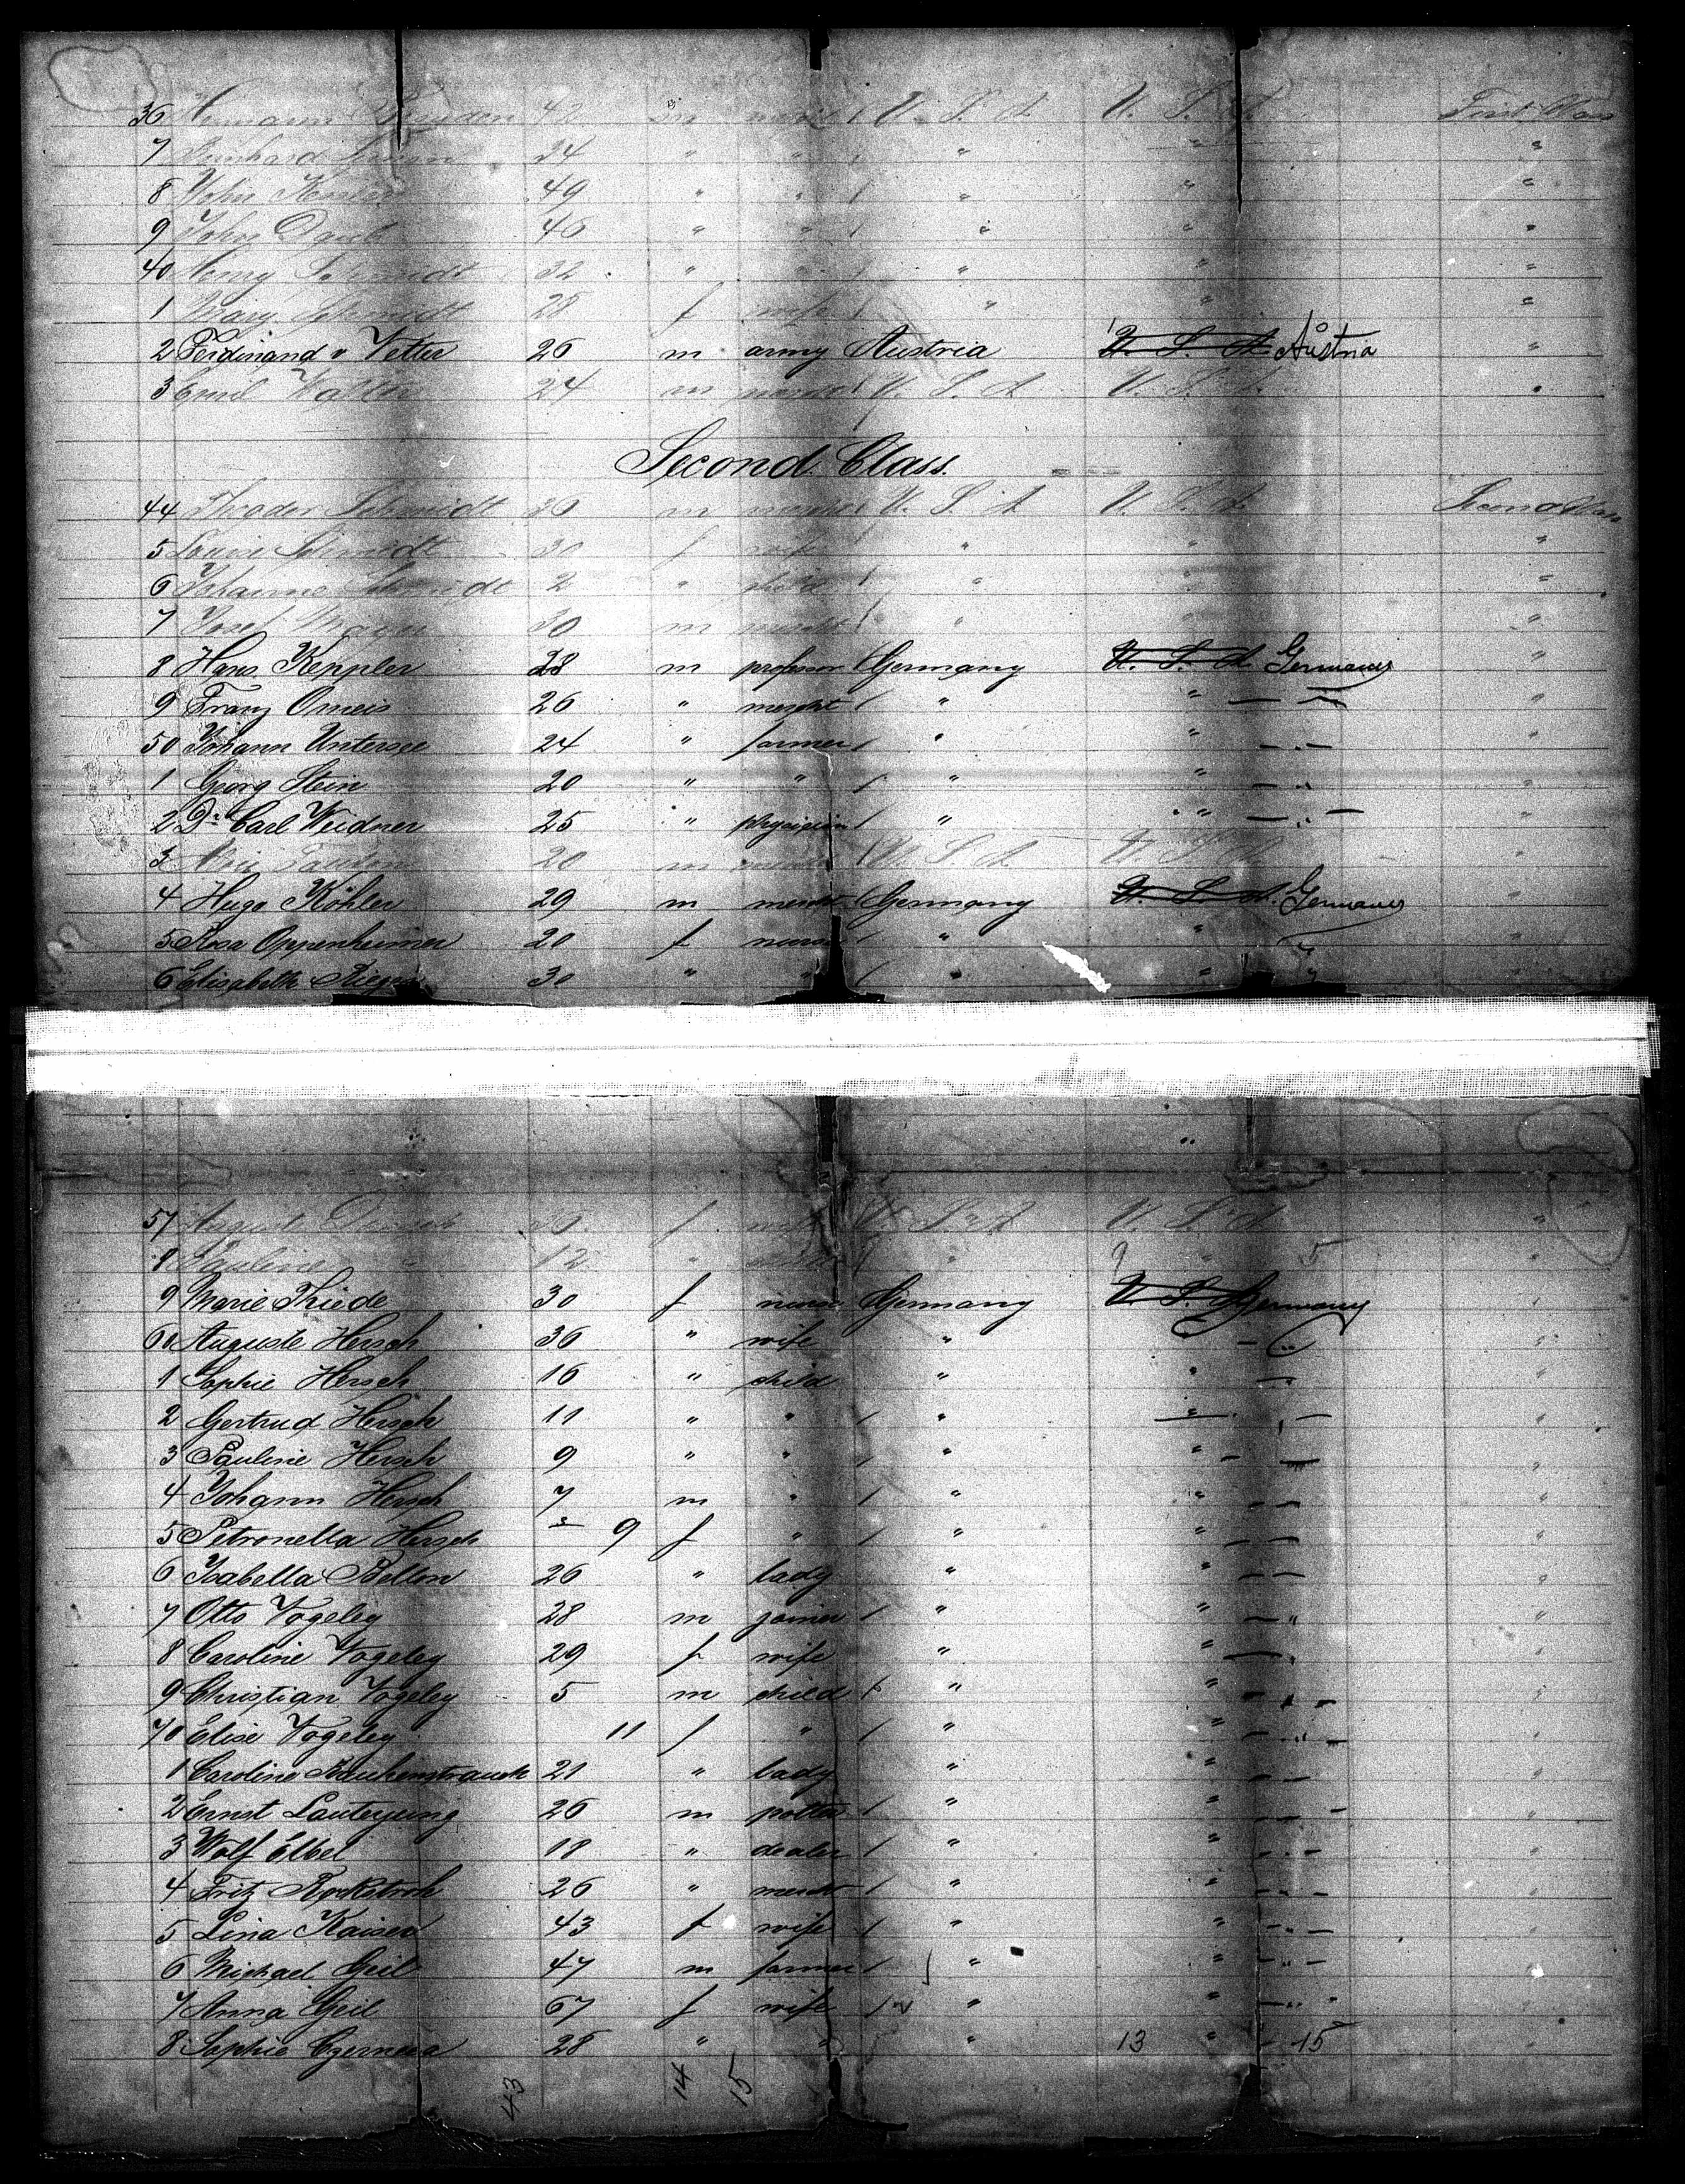 36 Hermann 42 m U. S. A U. S. A. First Class
7 34 " " " " "
8 John 49 " " " " "
9 John 46 " " " " "
40 Henry Schmidt 32 " " " " "
1 Mary Schmidt 28 f wife " " "
2 Ferdinand v Vetter 26 m army Austria U. S. A. Austria "
3 Emil Walter 24 m U. S. A U. S. A. "
Second Class.
44 Theodor Schmidt 36 m U. S. A U. S. A. Second Class
5 Louise Schmidt 30 f wife " " "
6 Johanne Schmidt 2 " child " " "
7 Josef Mayer 30 m mercht " " "
8 Hans Keppler 28 m professor Germany U. S. A. Germany "
9 Franz Omeis 26 " mercht " " "
50 Johann Untersee 24 " farmer " " "
1 Georg Stein 20 " " " " "
2 Dr. Carl Weidner 25 " physician " " "
3 20 m U. S. A U. S. A. "
4 Hugo Köhler 29 m mercht Germany U. S. A. Germany "
5 Rosa Oppenheimer 20 f nurse " " "
6 Elisabeth 30 " " " " "
57 August 30 f wife U. S. A U. S. A "
8 Pauline " 12 " " " 5 "
9 Marie Thiede 30 f nurse Germany U. S. Germany "
60 Auguste Hersch 36 " wife " " "
1 Sophie Hersch 16 " child " " "
2 Gertrud Hersch 11 " " " " "
3 Pauline Hersch 9 " " " " "
4 Johann Hersch 7 m " " " "
5 Petronella Hersch 9 f " " " "
6 Isabella Bellon 26 " lady " " "
7 Otto Vogeley 28 m joiner " " "
8 Caroline Vogeley 29 f wife " " "
9 Christian Vogeley 5 m child " " "
70 Elise Vogeley 11 f " " " "
1 Caroline 21 " lady " " "
2 Ernst Lauterjung 26 m potter " " "
3 Wolf Elbel 18 " dealer " " "
4 Fritz Rockstroh 26 " mercht " " "
5 Lina Kaiser 43 f wife " " "
6 Michael Geil 47 m farmer " " "
7 Anna Geil 67 f wife " " "
8 Sophie 28 " " " 13 " 15 "
43 14 15